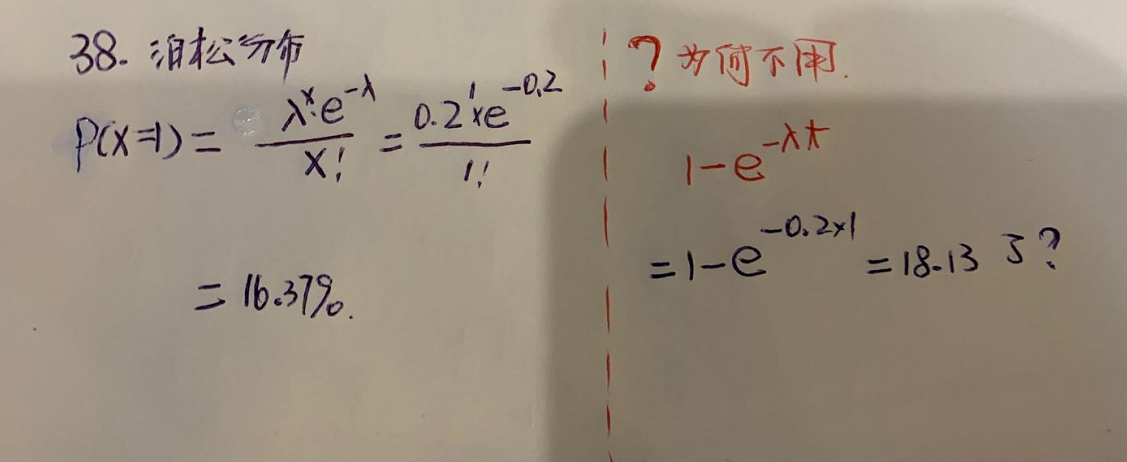 38. 泊松分布
P(X=1) = λˣ·e^(-λ) / x! = 0.2¹×e^(-0.2) / 1!
= 16.37%.
? 为何不用.
1-e^(-λt)
=1-e^(-0.2×1) =18.13 了?